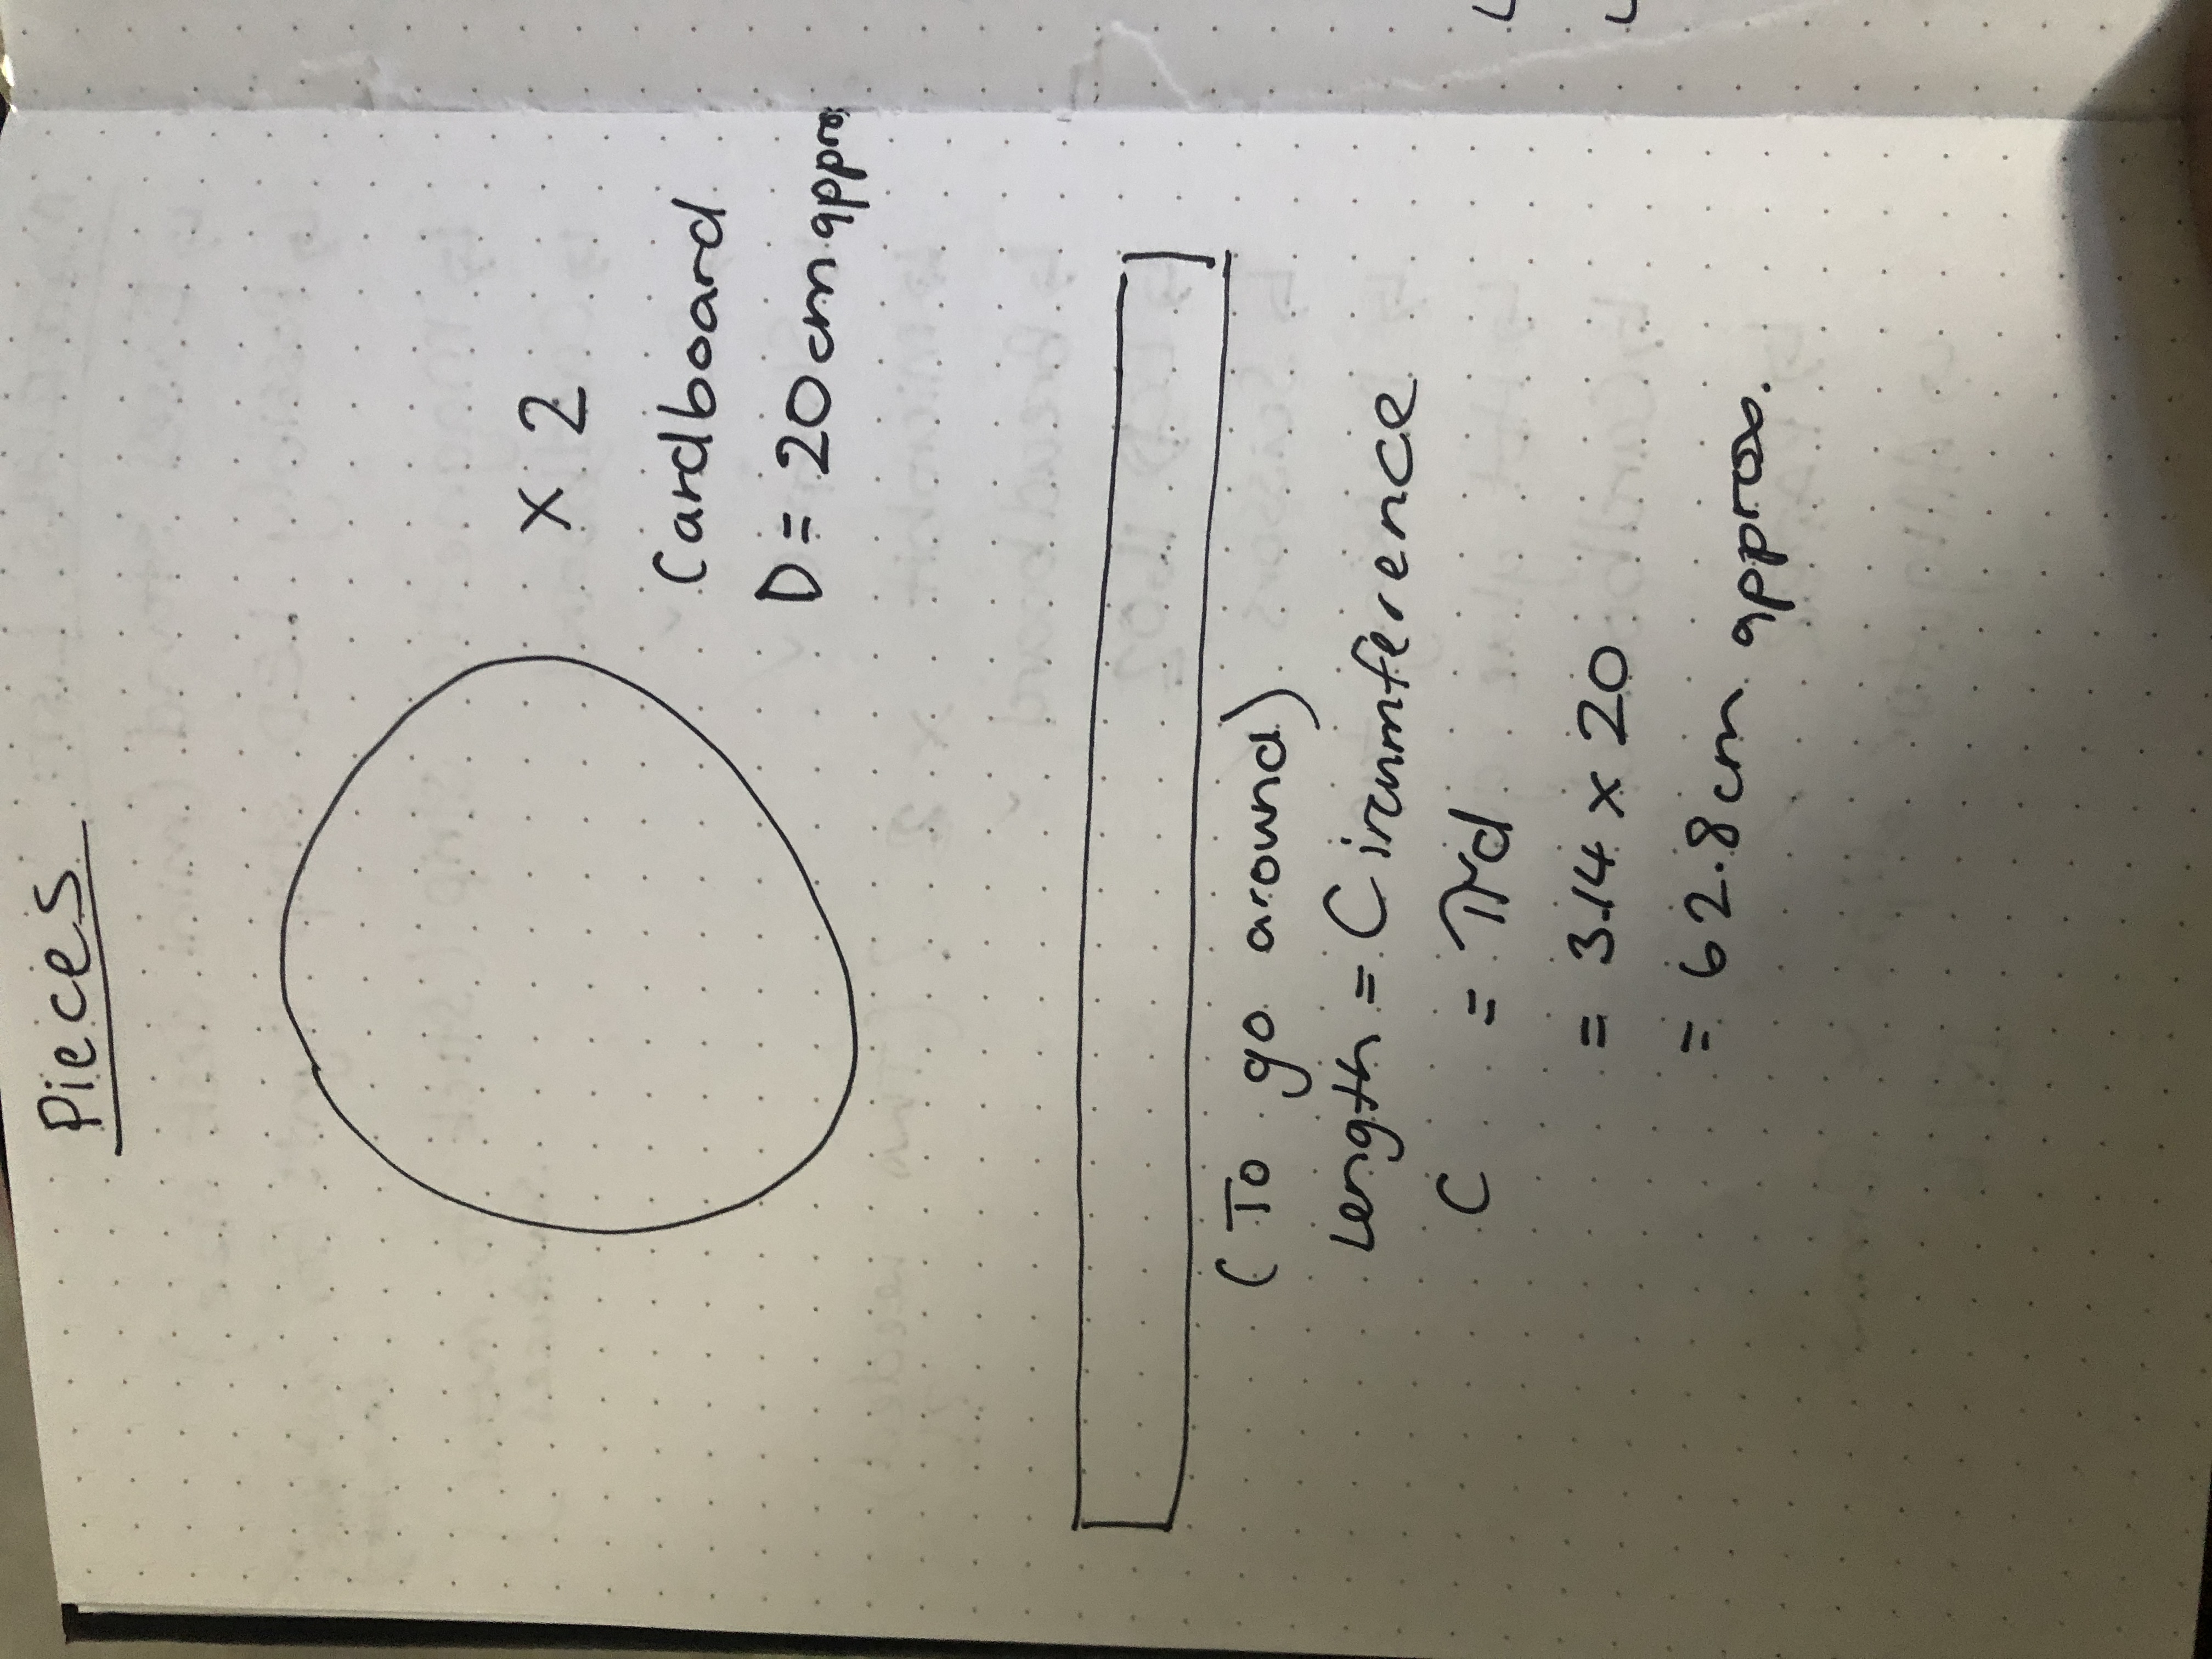 Pieces
x 2
Cardboard
D = 20cm approx
(To go around)
Length = Circumference
C = πd
= 3.14 x 20
= 62.8cm approx.